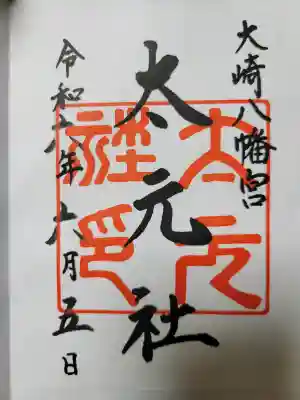 大崎八幡宮
太元社
令和六年六月五日
太元
社印